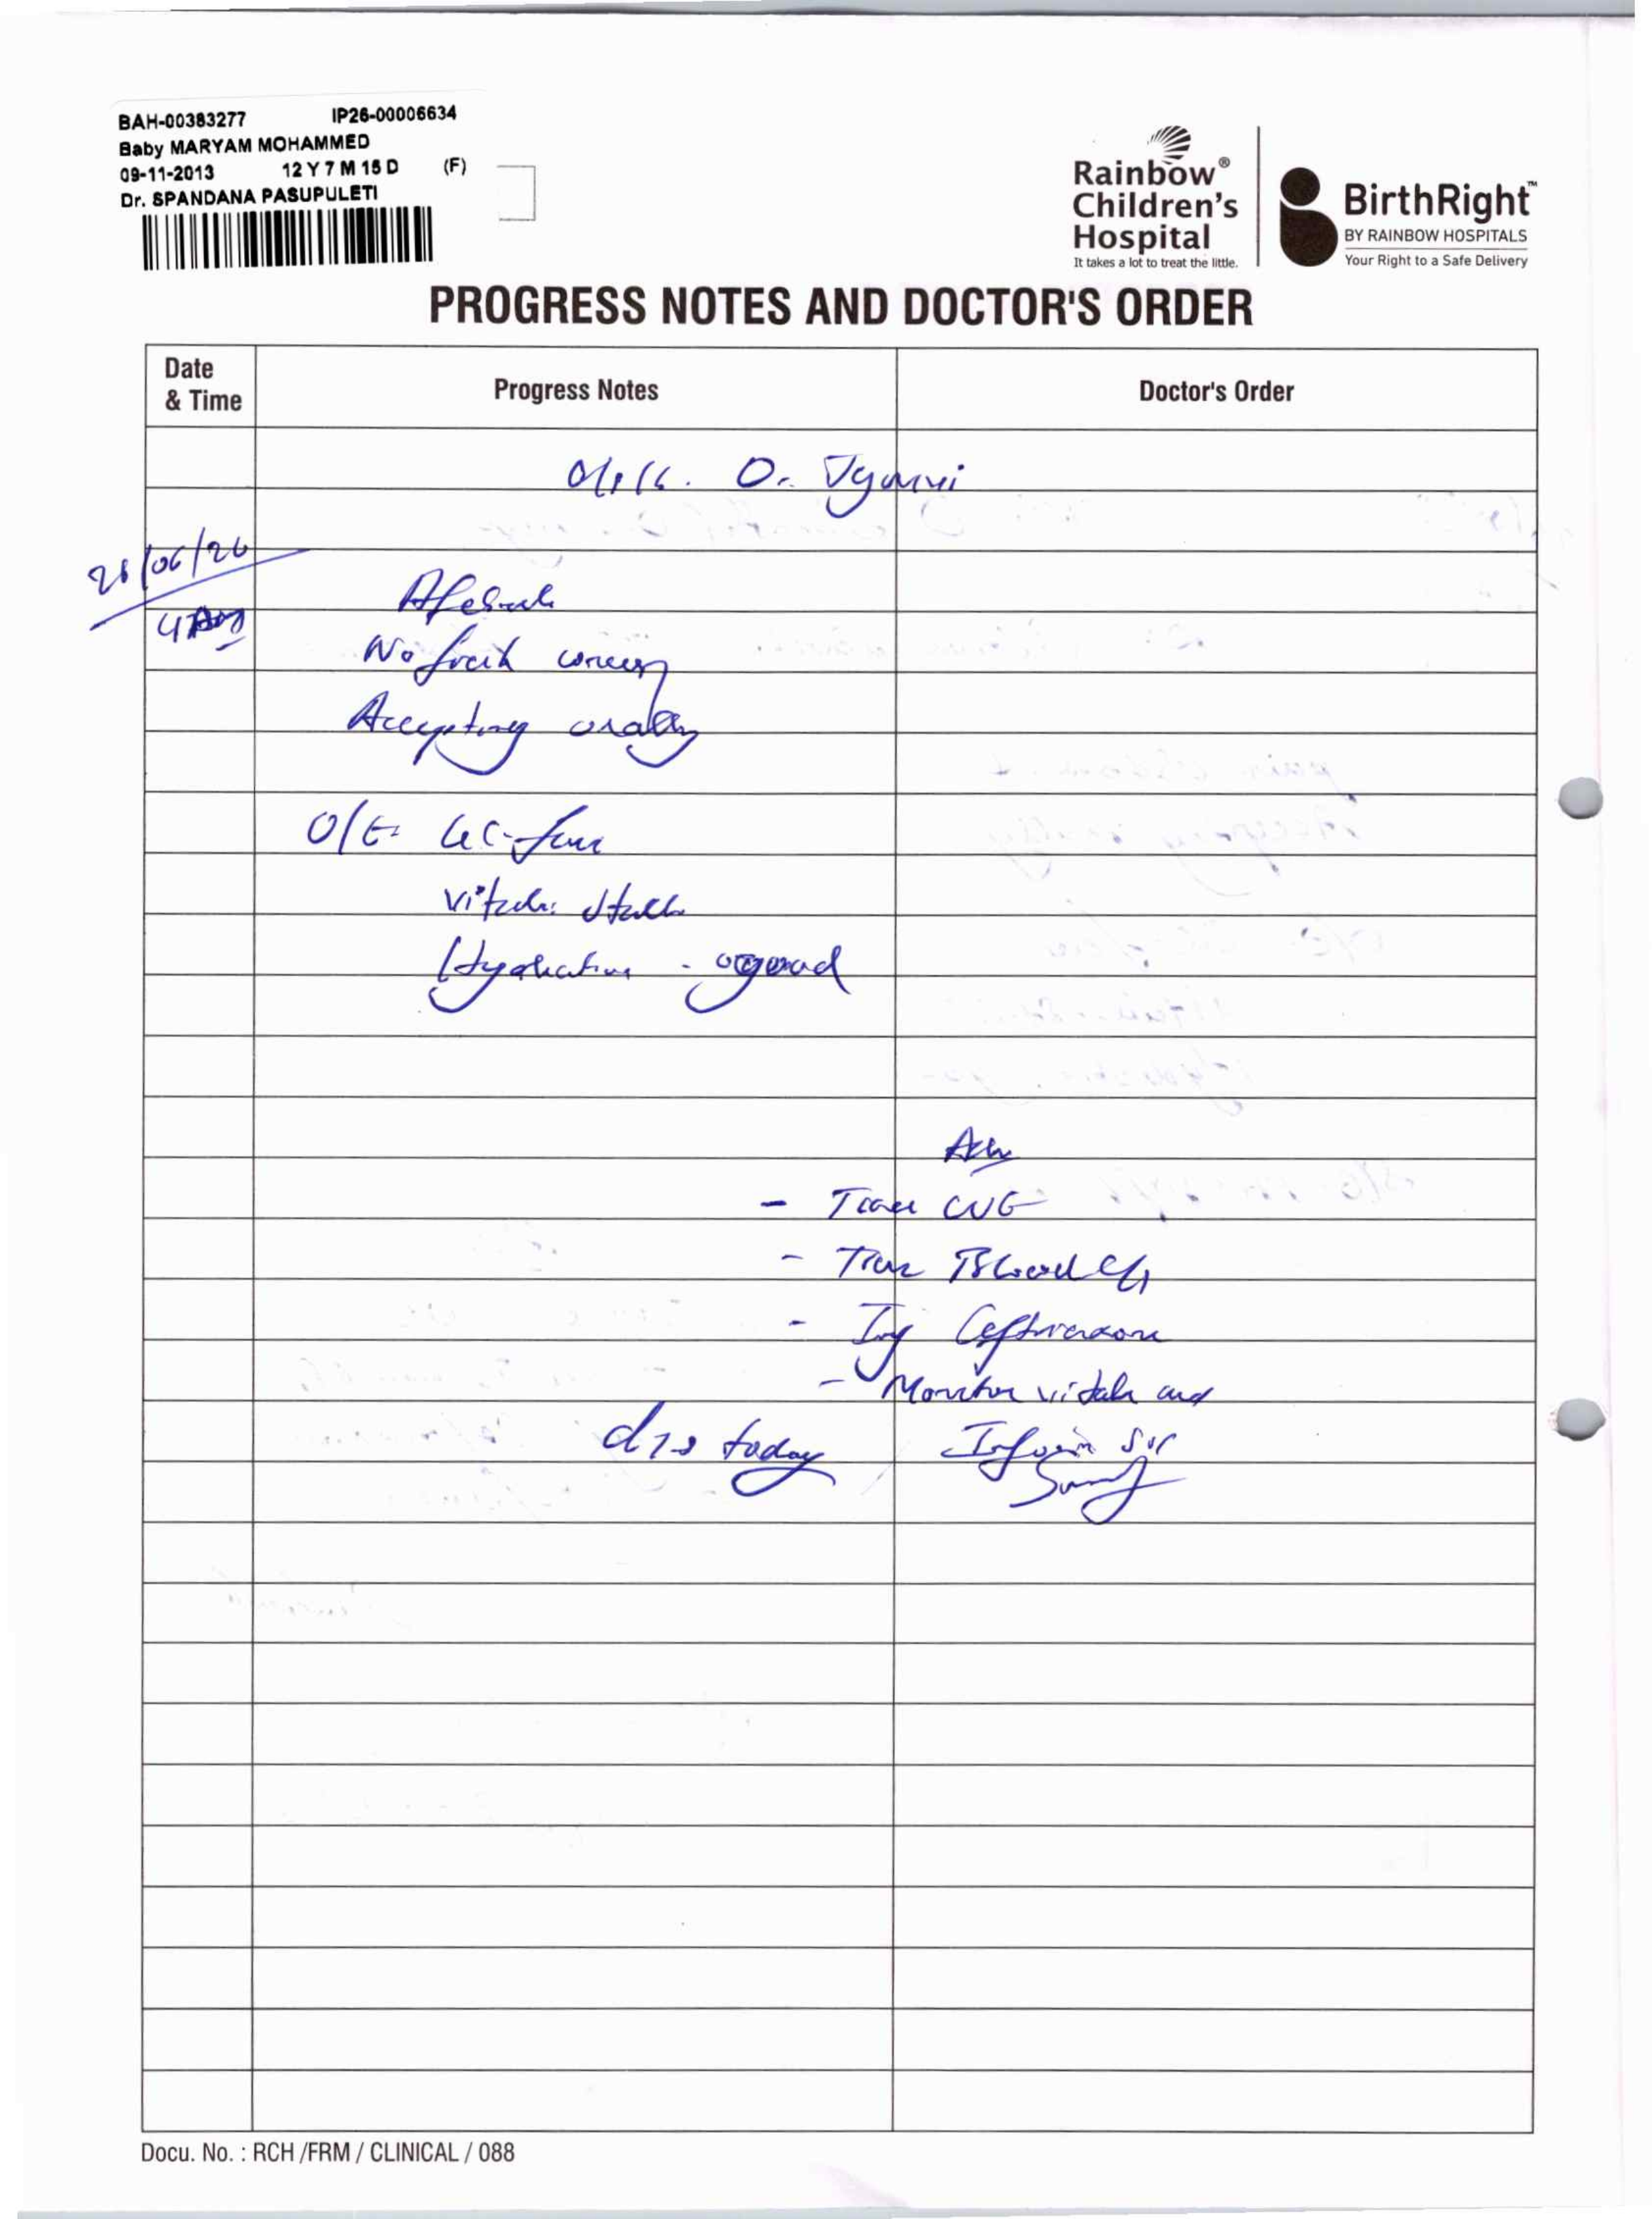 BAH-00383277 IP26-00006634
Baby MARYAM MOHAMMED
09-11-2013 12 Y 7 M 15 D (F)
Dr. SPANDANA PASUPULETI
Rainbow®
Children's
Hospital
It takes a lot to treat the little.
BirthRight™
BY RAINBOW HOSPITALS
Your Right to a Safe Delivery
PROGRESS NOTES AND DOCTOR'S ORDER
Date
& Time
Progress Notes
Doctor's Order
Dr.
/06/26
Afebrile
No fresh concern
Accepting orally
O/E: GC-fair
Vitals: stable
Hydration - good
Adv
- Trace CUE
- Trace Blood c/s
- Inj Ceftriaxone
- Monitor vitals and
Inform SOS
d/s today
Docu. No. : RCH /FRM / CLINICAL / 088